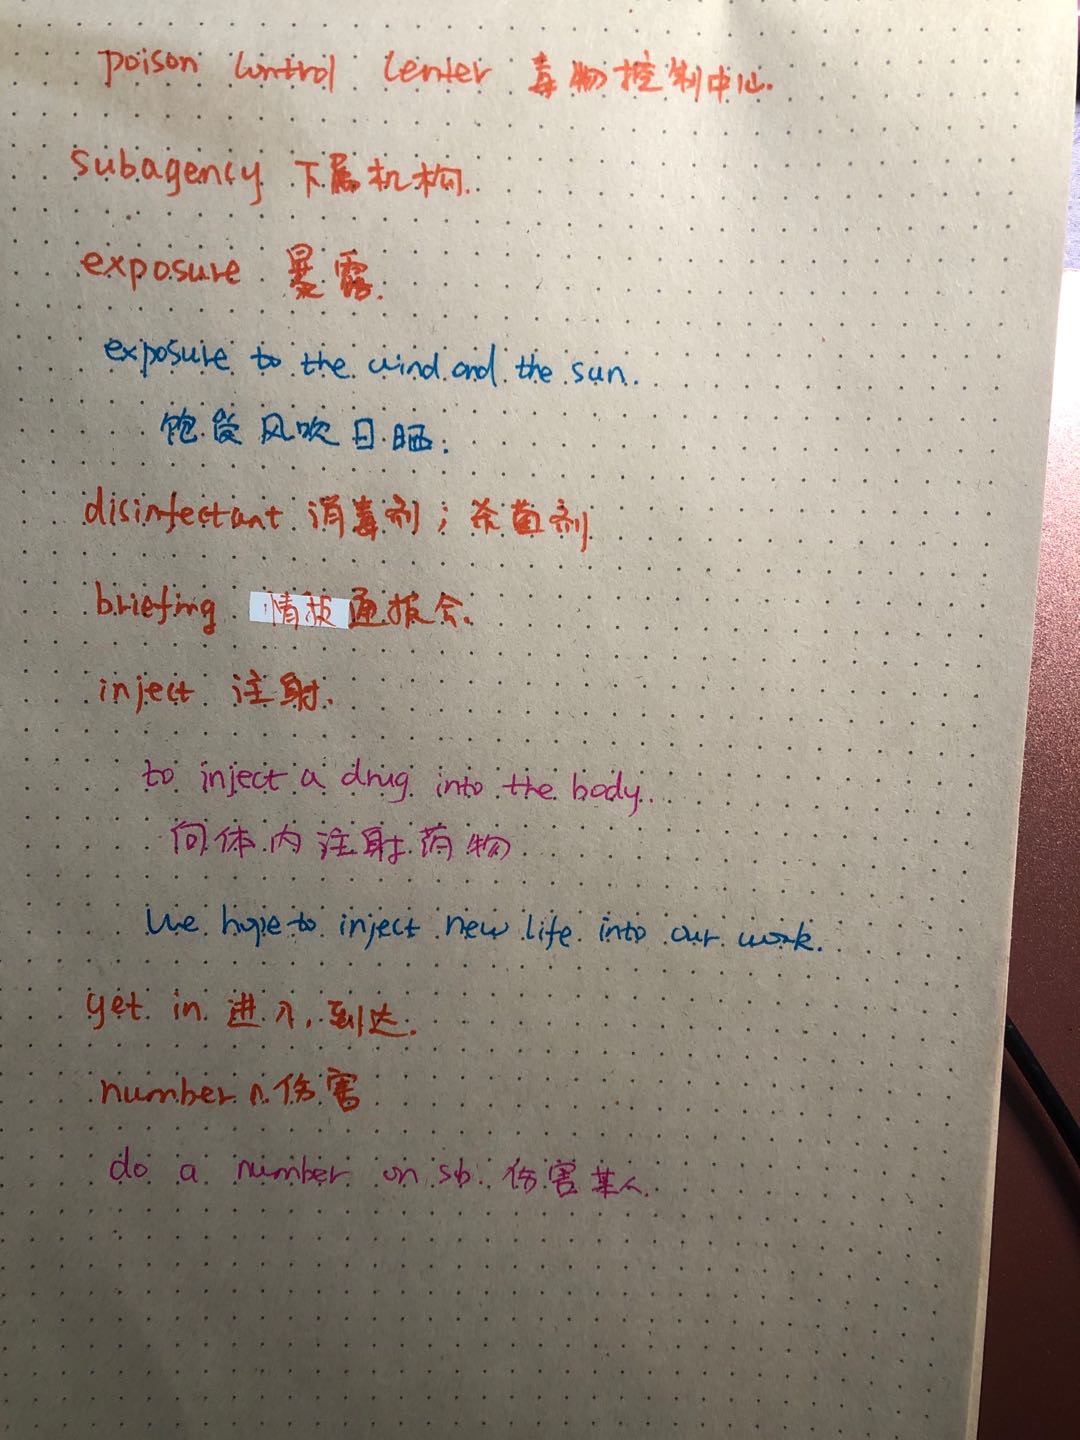 poison control center 毒物控制中心.
subagency 下属机构.
exposure 暴露.
exposure to the wind and the sun.
饱受风吹日晒.
disinfectant 消毒剂；杀菌剂
briefing 情报通报会.
inject 注射.
to inject a drug into the body.
向体内注射药物
We hope to inject new life into our work.
get in 进入,到达.
number n.伤害
do a number on sb. 伤害某人.